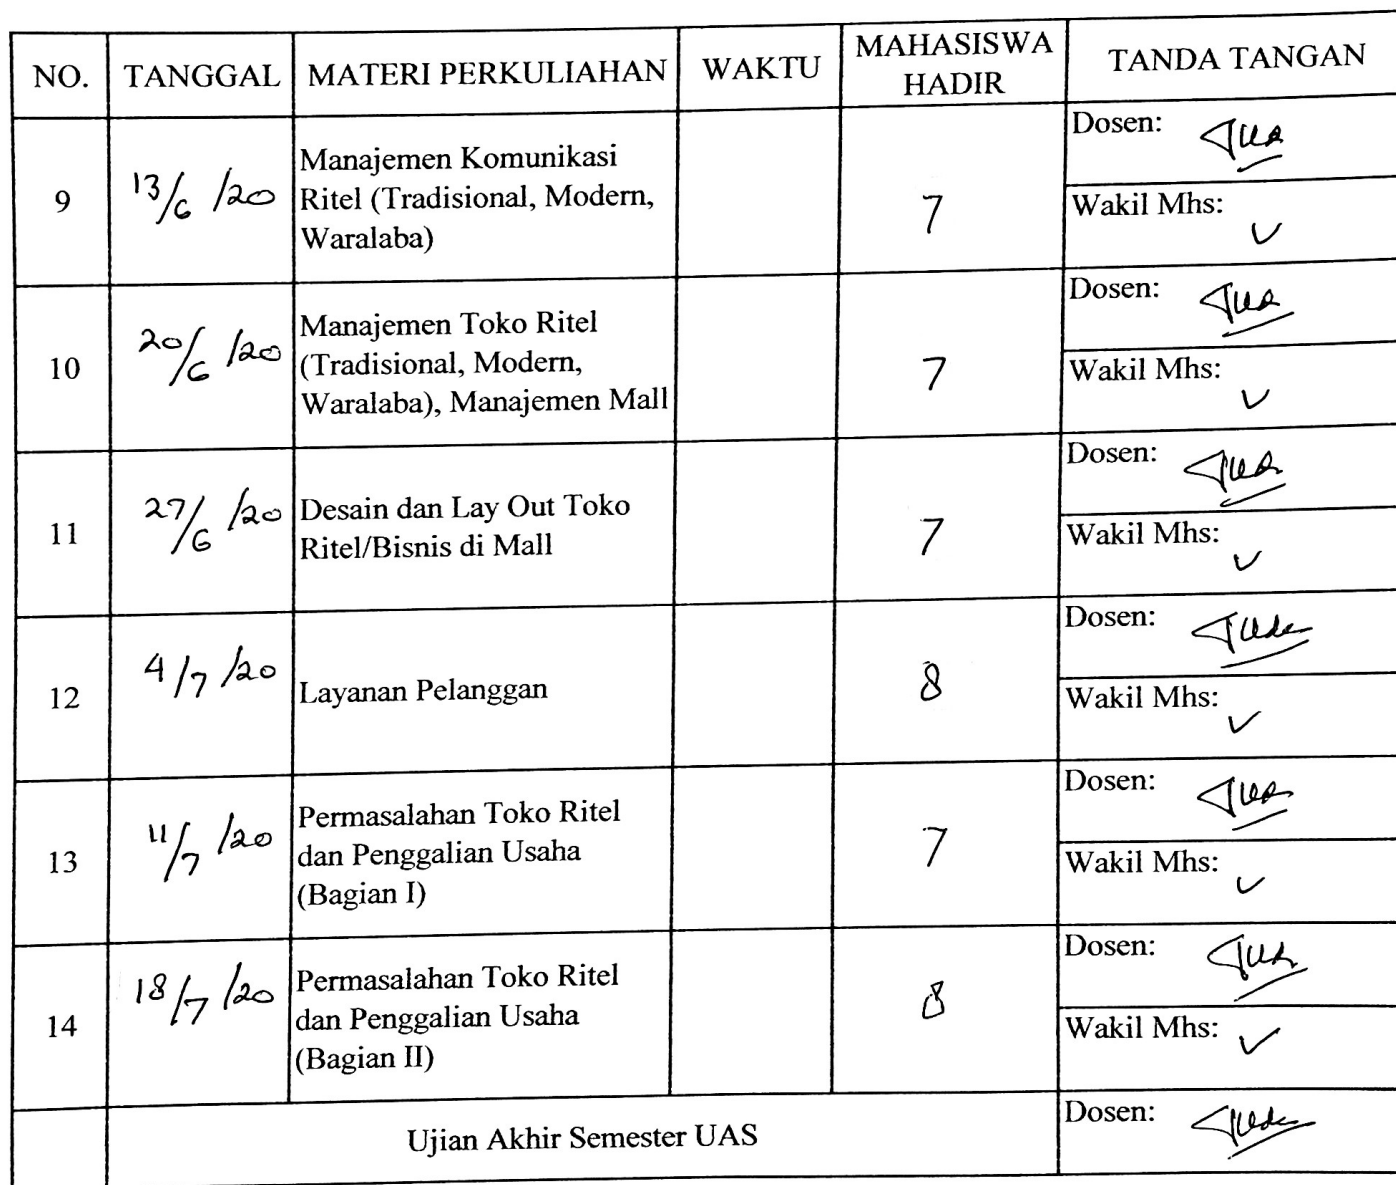 NO. TANGGAL MATERI PERKULIAHAN WAKTU MAHASISWA HADIR TANDA TANGAN
9 13/6/20 Manajemen Komunikasi
Ritel (Tradisional, Modern,
Waralaba)
7
Dosen:
Wakil Mhs:
10 20/6/20 Manajemen Toko Ritel
(Tradisional, Modern,
Waralaba), Manajemen Mall
7
Dosen:
Wakil Mhs:
11 27/6/20 Desain dan Lay Out Toko
Ritel/Bisnis di Mall
7
Dosen:
Wakil Mhs:
12 4/7/20 Layanan Pelanggan
8
Dosen:
Wakil Mhs:
13 11/7/20 Permasalahan Toko Ritel
dan Penggalian Usaha
(Bagian I)
7
Dosen:
Wakil Mhs:
14 18/7/20 Permasalahan Toko Ritel
dan Penggalian Usaha
(Bagian II)
8
Dosen:
Wakil Mhs:
Ujian Akhir Semester UAS
Dosen: